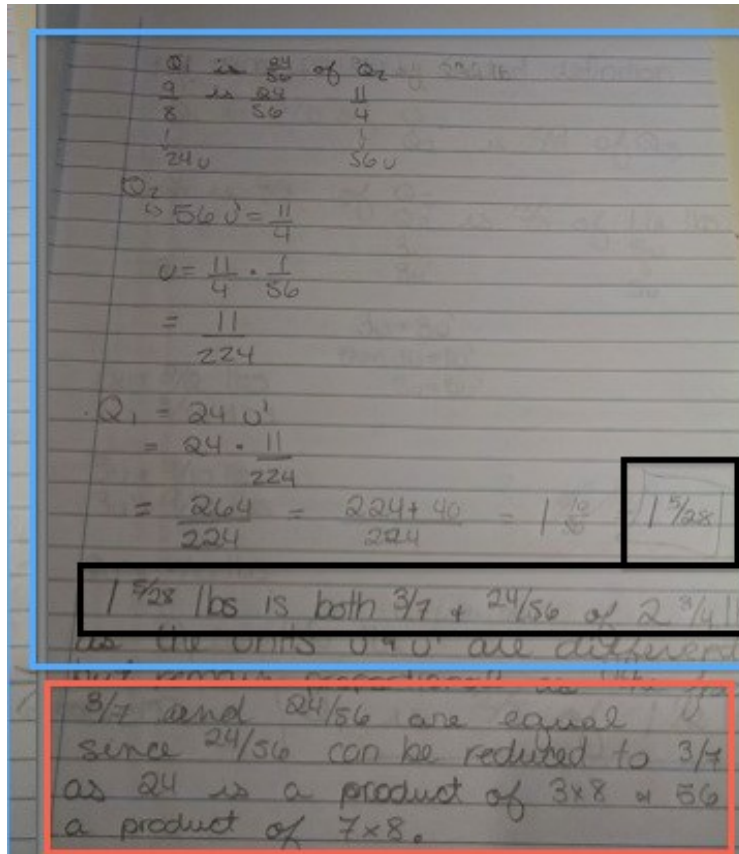 Q1 is 24/56 of Q2
9/8 is 24/56 11/4
24u 56u
Q2
↳ 56u' = 11/4
u = 11/4 · 1/56
= 11/224
Q1 = 24u'
= 24 · 11/224
= 264/224 = 224+40/224 = 1 1 5/28
1 5/28 lbs is both 3/7 + 24/56 of 2 3/4
as the units u + u' are different
but remain
3/7 and 24/56 are equal
since 24/56 can be reduced to 3/7
as 24 is a product of 3x8 + 56
a product of 7x8.